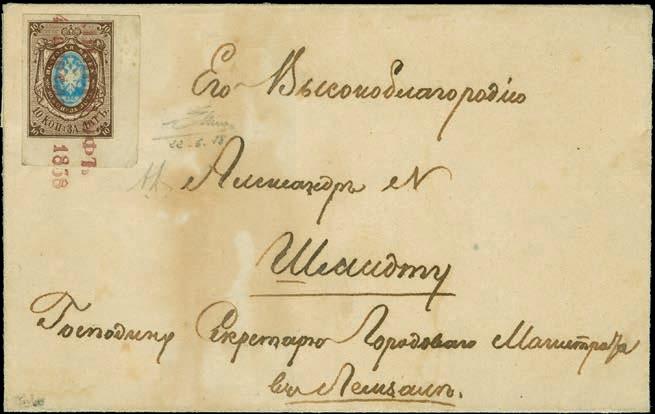 10 КОП: ЗА ЛОТЪ.
1858
Его Высокоблагородію
Александръ N
Шмидту
Господину Секретарю Городоваго Магистрата
въ